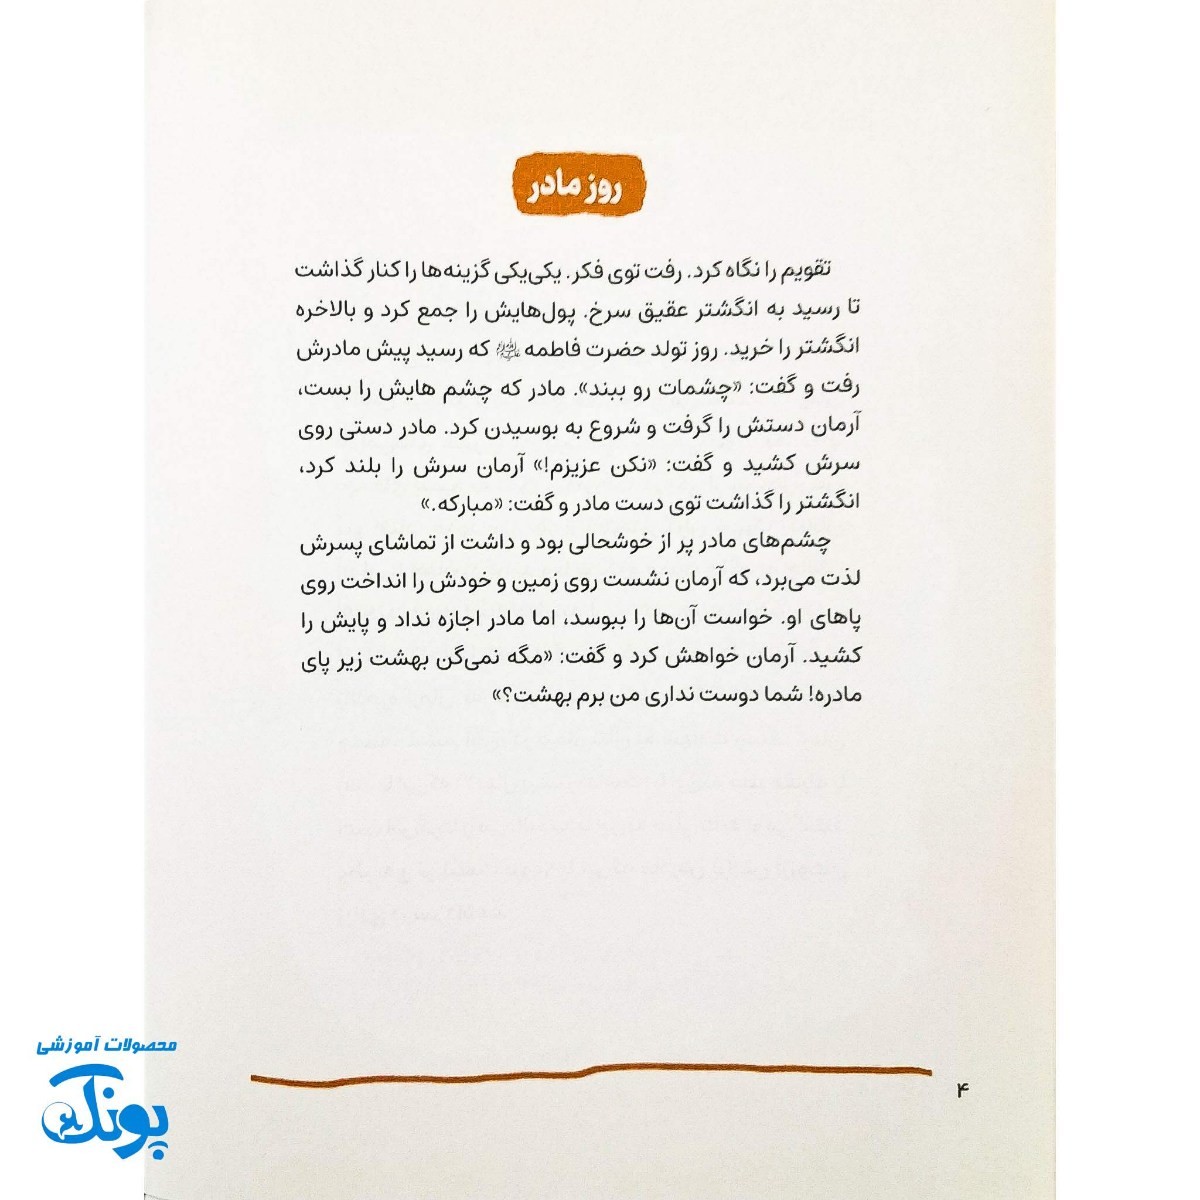 روز مادر
تقویم را نگاه کرد. رفت توی فکر. یکی‌یکی گزینه‌ها را کنار گذاشت
تا رسید به انگشتر عقیق سرخ. پول‌هایش را جمع کرد و بالاخره
انگشتر را خرید. روز تولد حضرت فاطمه که رسید پیش مادرش
رفت و گفت: «چشمات رو ببند». مادر که چشم هایش را بست،
آرمان دستش را گرفت و شروع به بوسیدن کرد. مادر دستی روی
سرش کشید و گفت: «نکن عزیزم!» آرمان سرش را بلند کرد،
انگشتر را گذاشت توی دست مادر و گفت: «مبارکه.»
چشم‌های مادر پر از خوشحالی بود و داشت از تماشای پسرش
لذت می‌برد، که آرمان نشست روی زمین و خودش را انداخت روی
پاهای او. خواست آن‌ها را ببوسد، اما مادر اجازه نداد و پایش را
کشید. آرمان خواهش کرد و گفت: «مگه نمی‌گن بهشت زیر پای
مادره! شما دوست نداری من برم بهشت؟»
محصولات آموزشی
پونک
۴